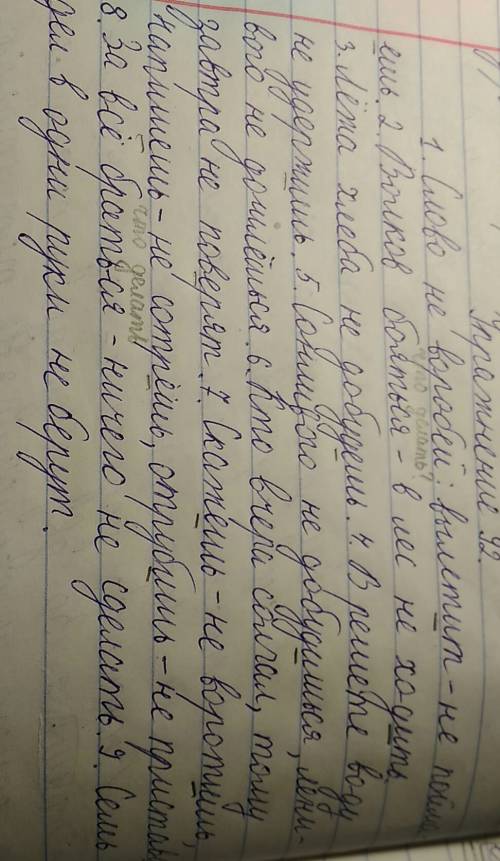 Упражнение 92.
1. Слово не воробей: вылетит – не пойма
что делать?
ешь. 2. Волков бояться – в лес не ходить.
3. Лёжа хлеба не добудешь. 4. В решете воду
не удержишь. 5. Сонливого не добудишься, лени-
вого не дошлёшься. 6. Кто вчера солгал, тому
завтра не поверят. 7. Скажешь – не воротишь,
напишешь – не сотрёшь, отрубишь – не пристав
что делать
8. За всё браться – ничего не сделать. 9. Семь
дел в одни руки не берут.